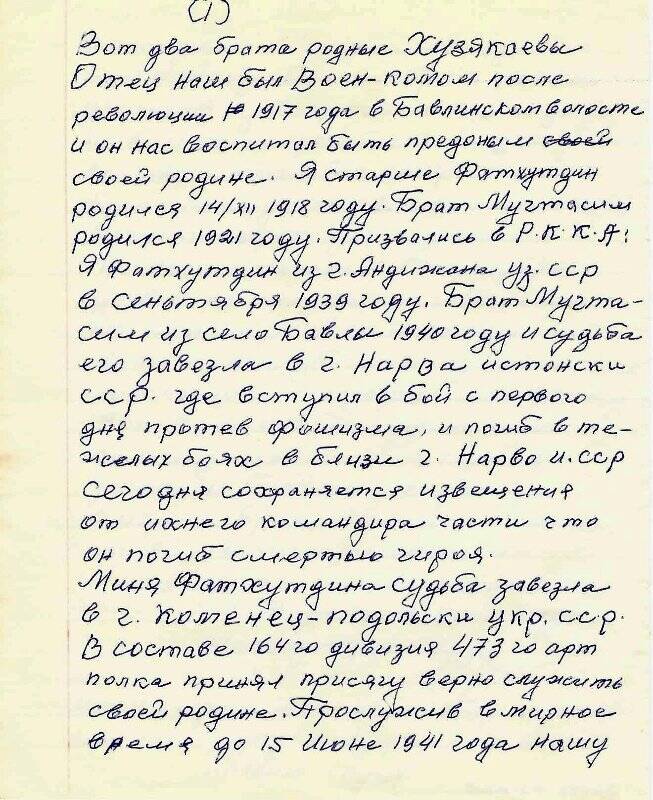 (1)
Вот два брата родные Хузякаевы
Отец наш был Воен-комом после
революции 1917 года в Бавлинском волосте
и он нас воспитал быть предоным своей
своей родине. Я старше Фатхутдин
родился 14/XII 1918 году. Брат Мугтасим
родился 1921 году. Призвались в Р.К.К.А:
Я Фатхутдин из г. Андижана уз. сср
в сеньтября 1939 году. Брат Мугта-
сим из село Бавлы 1940 году и судьба
его завезла в г. Нарва истонски
сср. где вступил в бой с первого
дня протев фошизма, и погиб в тя-
желых боях в близи г. Нарво и. сср
Сегодня сохраняется извещения
от ихнего командира части что
он погиб смертью гироя.
Миня Фатхутдина судьба завезла
в г. Коменец-подольски укр. сср.
В составе 164го дивизия 473го арт
полка принял присягу верно служить
своей родине. Прослужив в мирное
время до 15 Июне 1941 года нашу